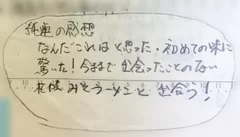 の感想
なんだこれはと思った。初めての味に
驚いた！今まで出会ったことのない
みそラーメンと出会う！